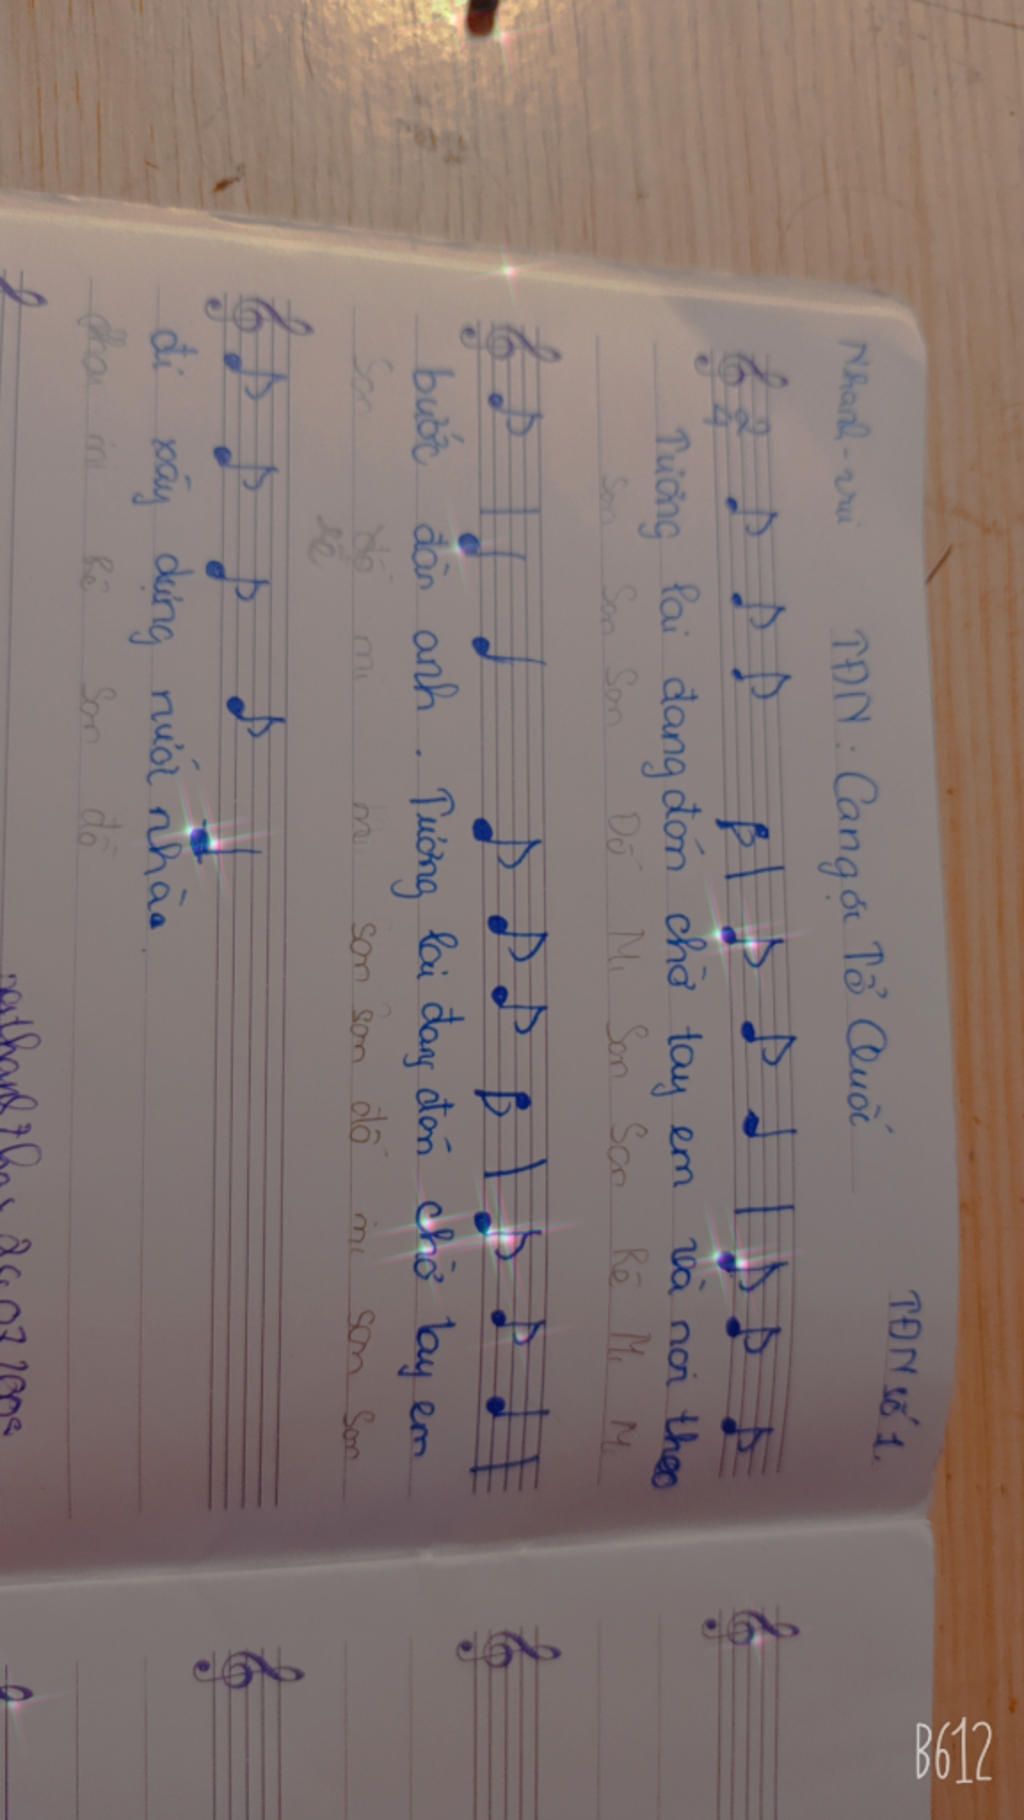 TĐN số 1.
TĐN: Ca ngợi Tổ Quốc
Nhanh - vui
2
4
Tương lai đang đón chờ tay em và nơi theo
Son Son Son Đố Mi Son Son Rê Mi Mi
bước đàn anh. Tương lai đang đón chờ tay em
Son đồ mi mi son son đố mi son son
rê
đi xây dựng nước nhà.
mi rê son đồ
B612